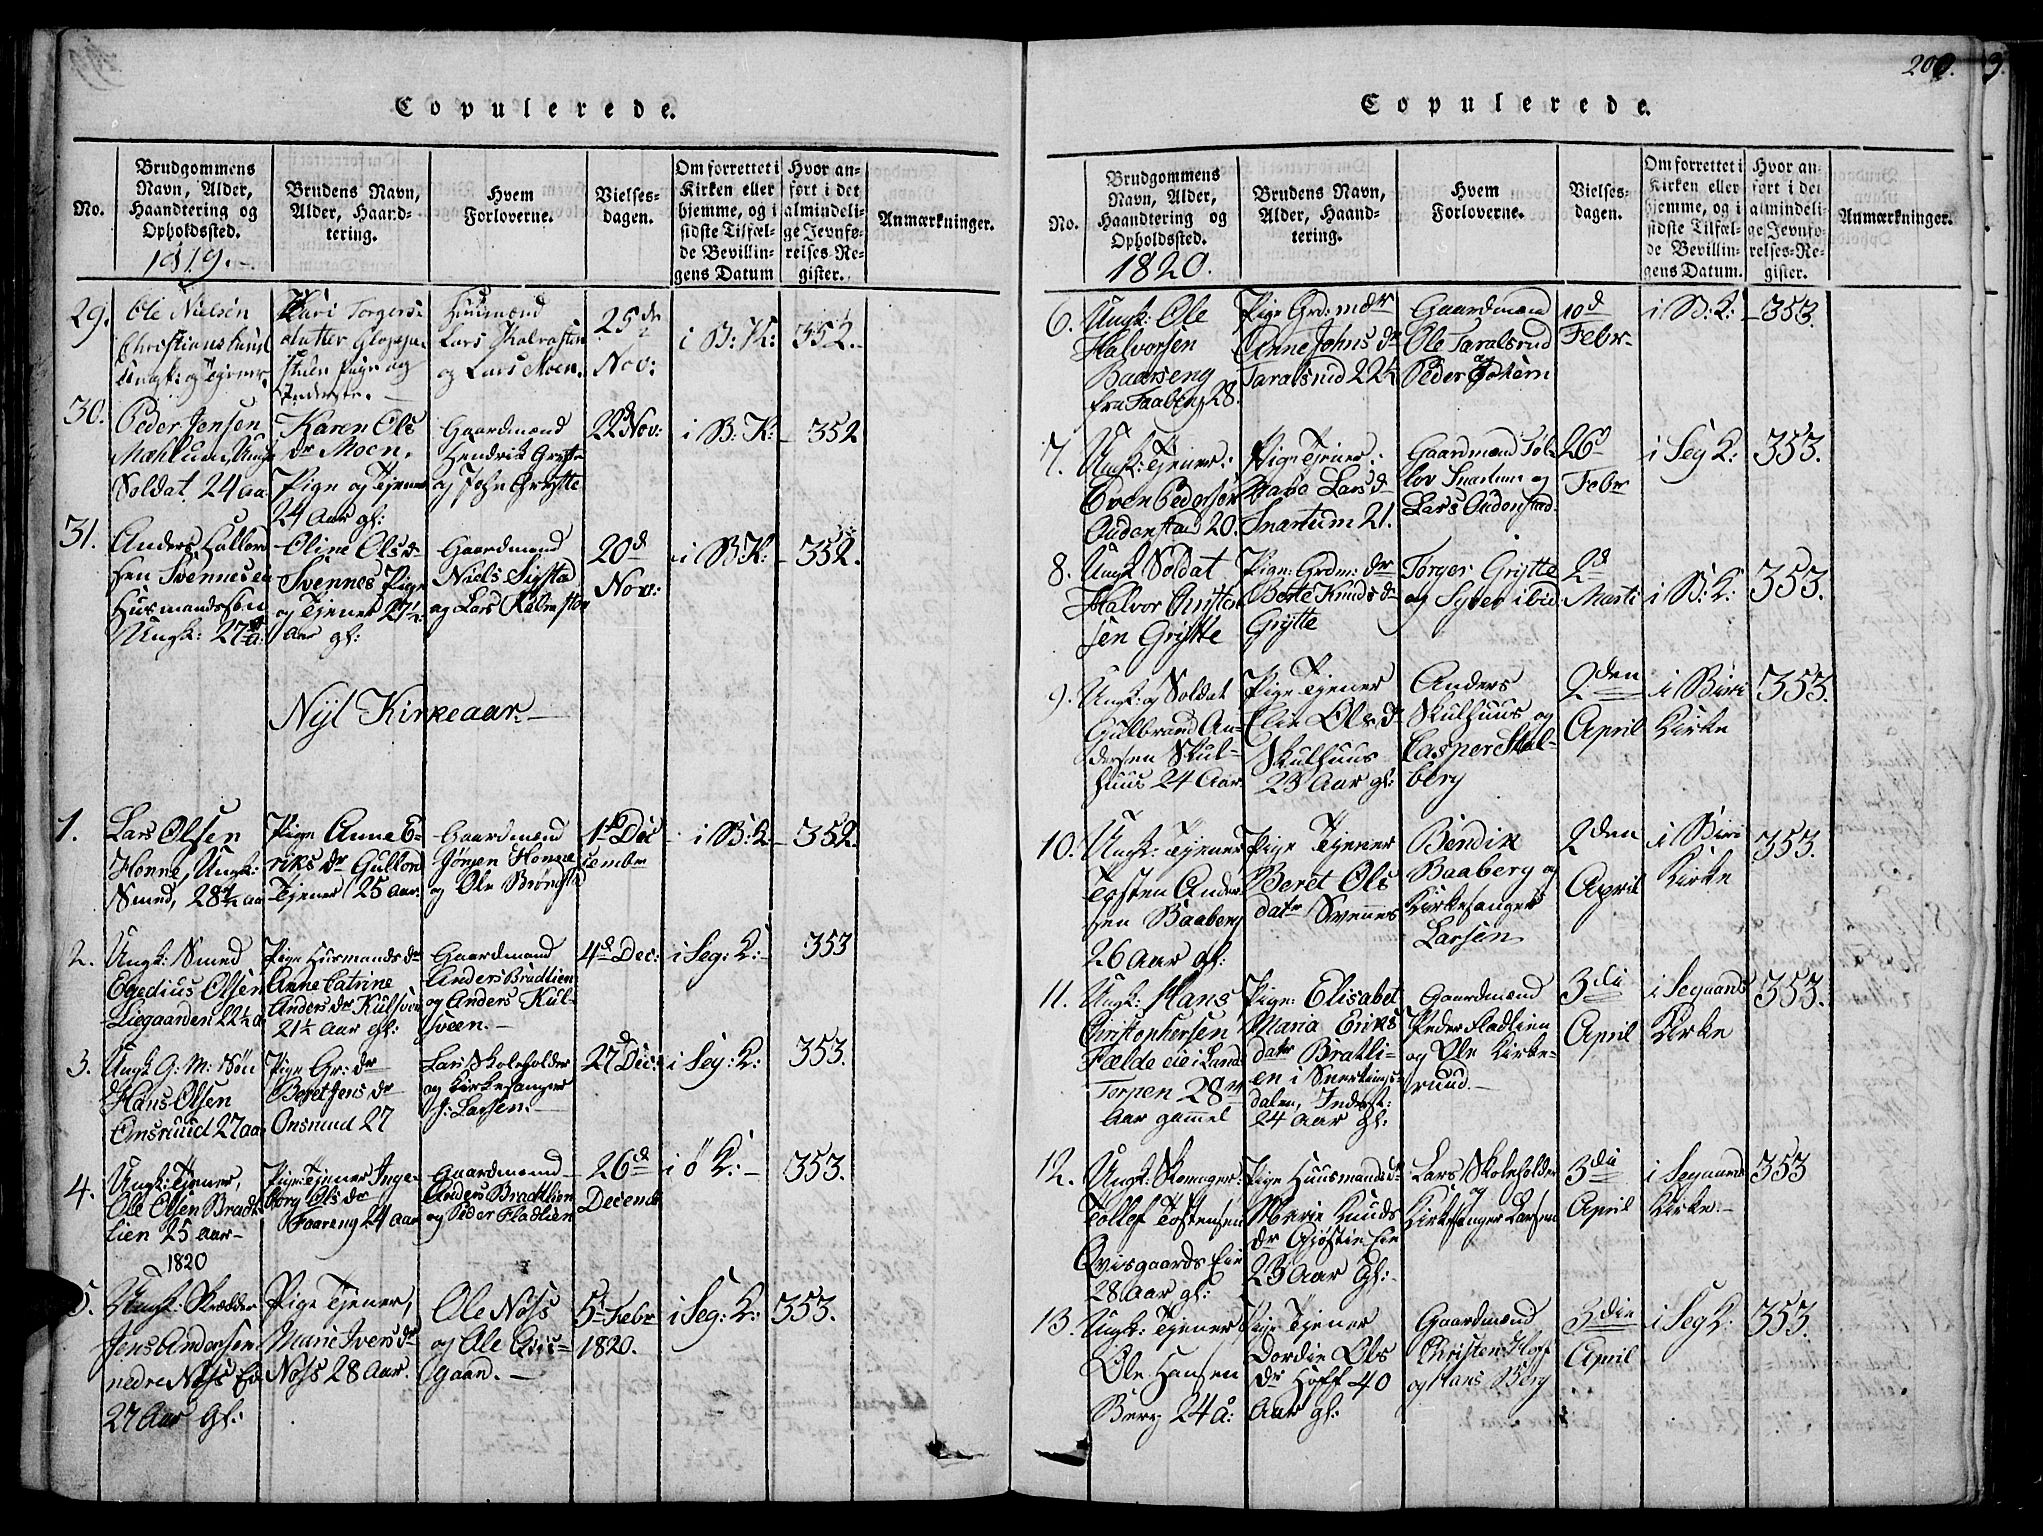 Copulerede.
No.
Brudgommens
Navn, Alder,
Haandtering og
Opholdssted.
1819.
Brudens Navn,
Alder, Haand-
tering.
Hvem
Forloverne.
Vielses-
dagen.
Om forrettet i
Kirken eller
hjemme, og i
sidste Tilfæl-
de Bevillin-
gens Datum
Hvor an-
ført i det
almindeli-
ge Jevnfø-
relses-Re-
gister.
Anmærkninger.
29.
Ole Nielsen
Christianslund
Ungk: og Tjener
Kari Torgers
datter
Pige og
Inderste.
Huusmænd
Lars Kalrasten
og Lars Moen.
25de
Nov:
i B: K:
352.
30.
Peder Jensen
Mæhlum, Ungk
Soldat 24 aa
Karen Ols
dr Moen,
Pige og Tjener
24 Aar gl:
Gaardmænd
Hendrik Grytte
og John Grytte
22 Nov:
i B: K:
352
31.
Anders Hallvor
sen Svennes ei
Huusmandssøn
Ungk: 27 a:
Oline Ols d
Svennes Pige
og Tjener 27½
Aar gl:
Gaardmænd
Niels Sigstad
og Lars Kalrasten
20d
Nov:
i B: K:
352.
Nyt Kirkeaar.
1.
Lars Olsen
Honne, Ungk:
Smed, 28½ aa
Pige Anne E-
riks dr Gullord
Tjener 25 aar.
Gaardmænd
Jörgen Honne
og Ole Brøngstad
1st Dec
cembr
i B: K
352.
2.
Ungk: Smed
Egedius Olsen
Liegaarden 22½ a
Pige Huusmands dr
Anne Catrine
Anders dr Kulsveen
21½ Aar gl:
Gaardmænd
Anders Bradtlien
og Anders Kul-
sveen.
4d Dec:
i Seg: K:
353
3.
Ungk G: M: Søn
Hans Olsen
Onsruud 27 aa
Pige Gr: dr
Beret Jens dr
Onsruud 27
Lars Skoleholder
og Kirkesanger
J: Larsen.
27 Dec:
i Seg: K:
353.
4.
Ungk: Tjener,
Ole Olsen Bradt-
lien 25 aar
Pige: Tjener Inge-
borg Ols dr
Faareng 24 aar
Gaardmænd
Anders Bradtlien
og Peder Fladlien
26d
Decemb
i Ö K:
353.
1820
5.
Ungk: Skrædder
Jens Andersen
nedre Nøss Eie
27 Aar gl:
Pige Tjener,
Marie Ivers dr
Nøss 28 Aar.
Ole Nøss
og Ole Qvis-
gaard.
5 Febr
1820.
i Seg: K:
353.
Copulerede.
200.
No.
Brudgommens
Navn, Alder,
Haandtering og
Opholdssted.
1820.
Brudens Navn,
Alder, Haand-
tering.
Hvem
Forloverne.
Vielses-
dagen.
Om forrettet i
Kirken eller
hjemme, og i
sidste Tilfæl-
de Bevillin-
gens Datum.
Hvor an-
ført i det
almindeli-
ge Jevnfø-
relses-Re-
gister.
Anmærkninger.
6.
Ungk: Ole
Halvorsen
Baaseng
fra Faaberg 28.
Pige Grd: m dr
Anne Johns dr
Taralsrud 22½
Gaardmænd
Ole Taralsrud
og
Peder
10d
Febr
i B: K:
353.
7.
Ungk: Tjener:
Even Pedersen
Oudenstad 20.
Pige Tjener:
Lars d
Snartum 21.
Gaardmænd Tol-
lov Snartum og
Lars Oudenstad.
26
Febr
i Seg K:
353.
8.
Ungk Soldat
Halvor Christen
sen Grytte
Pige: Grdm: dr
Berte Knuds d
Grytte
Torger Grytte
og Syver ibid
2d
Marti
i B: K:
353.
9.
Ungk: og Soldat
Gulbrand An-
dersen Skul-
huus 24 Aar
Pige Tjener
Elie Ols d
Skulhuus
23 Aar gl:
Anders
Skulhuus og
Casper Skul-
berg
2den
April
i Biri
Kirke
353.
10.
Ungk: Tjener
Tosten Ander
sen Baaberg
26 Aar gl:
Pige Tjener
Beret Ols
datr Svennes
Bendix
Baaberg og
Kirkesanger
Larsen
2den
April
i Biri
Kirke
353.
11.
Ungk: Hans
Christophersen
Fælde eie i Land
Torpen 28
Aar gammel
Pige: Elisabet
Maria Eriks
datr Bratli-
en i Snertings-
dalen, Inderst:
24 Aar gl:
Gaardmænd
Peder Fladlien
og Ole Kirke-
ruud.
3die
April
i Segaard
Kirke
353.
12.
Ungk:
Tollef Tostensen
Qvisgaards Eie
28 Aar gl:
Pige Huusmandsd
Marie Knuds
dr Gjøstie Eie
23 Aar Gl:
Lars Skoleholder
og
Kirkesanger Larsen
3die
April
i Segaard
Kirke.
353
13.
Ungk: Tjener
Ole Hansen
Berg 24 å:
Pige Tjener
Dordie Ols
dr Hoff 40
Aar gl:
Gaardmænd
Christen Hoff
og Hans Berg
3die
April
i Seg K:
353.